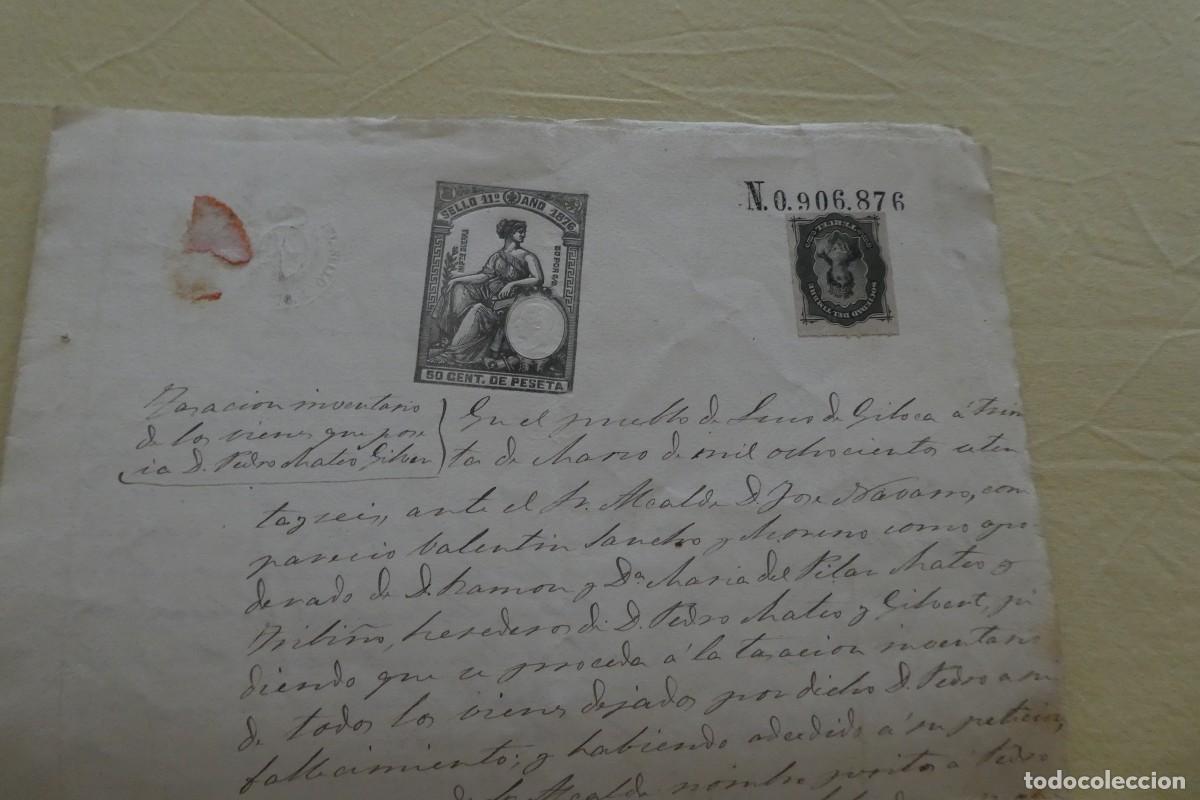 N. 0.906.876
SELLO 11º AÑO 1876
50 POR %
50 CENT. DE PESETA
SOCIEDAD DEL TIMBRE
Tasacion inventario
de los vienes que pose
ia D. Pedro Mateo Gilver
En el pueblo de Luco de Giloca á trein
ta de Marzo de mil ochocientos seten
tayseis, ante el Sr. Alcalde D. Jose Navarro, com
parecio Valentin Sancho y Moreno como apo
derado de D. Ramon y Dª Maria del Pilar Mateo y
herederos de D. Pedro Mateo y Gilvert, pi
diendo que se proceda á la tasacion inventario
de todos los vienes dejados por dicho D. Pedro a su
fallecimiento; y habiendo accedido á su peticion,
Sr. Alcalde nombro peritos á Pedro
todocoleccion